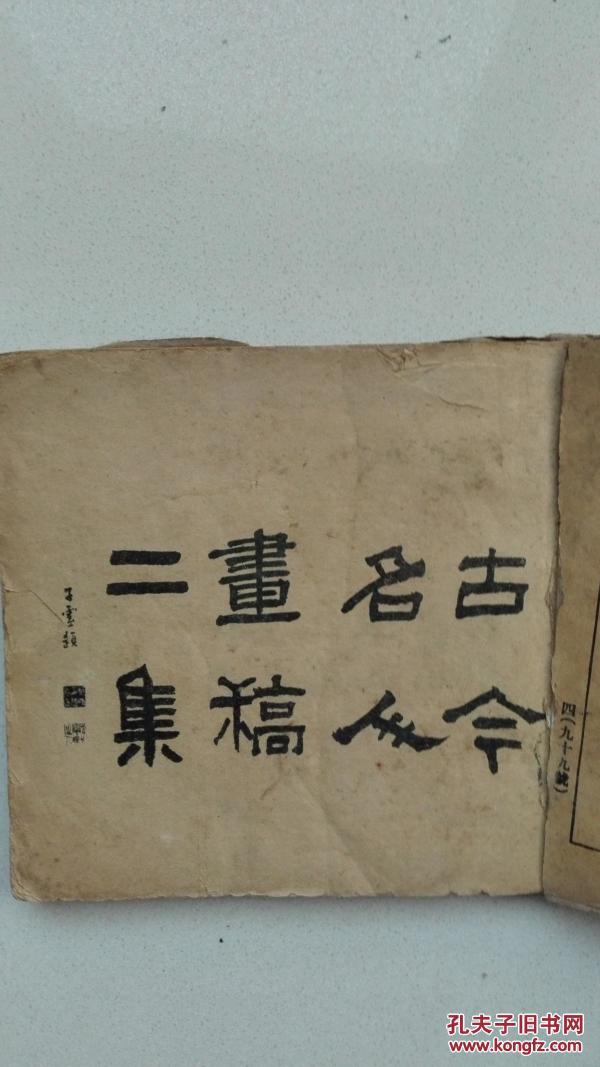 古今
名人
畫稿
二集
四(九十九號)
孔夫子旧书网
www.kongfz.com